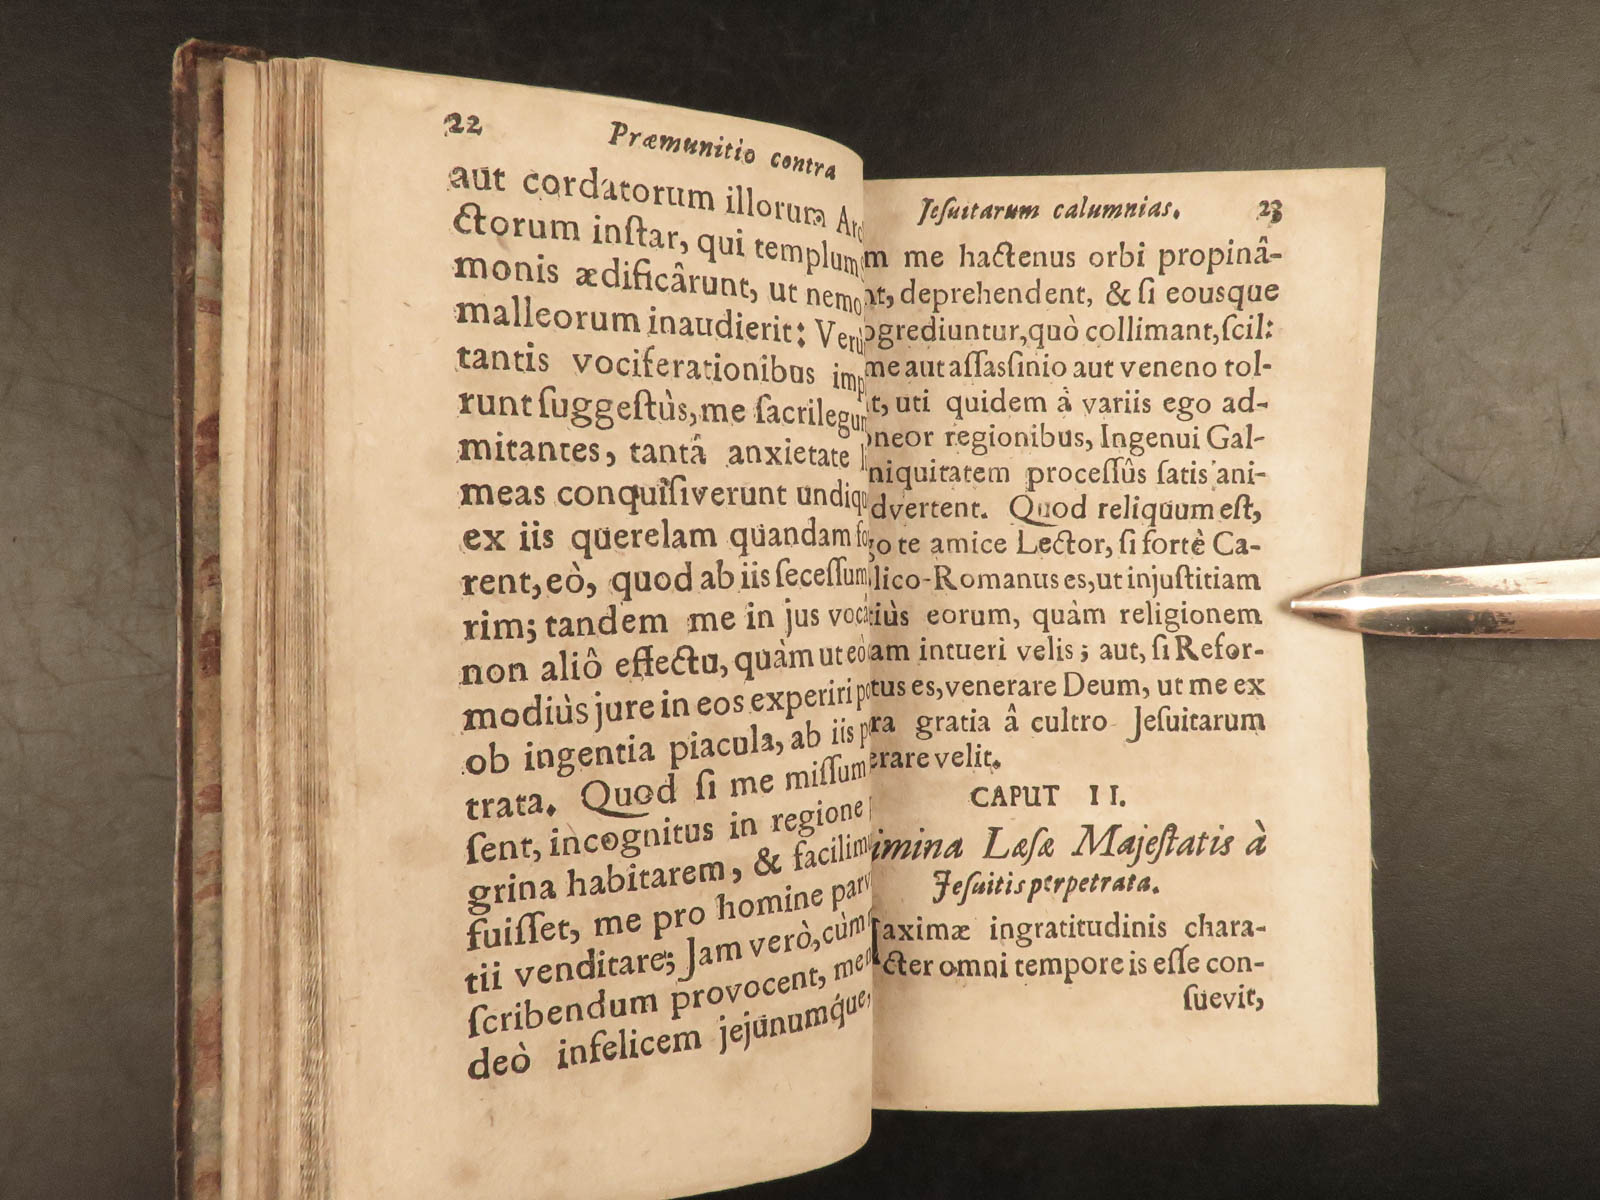 22 Præmunitio contra
aut cordatorum illorum
ctorum inſtar, qui templum
monis ædificârunt, ut nemo
malleorum inaudierit: Verù
tantis vociferationibus imp
runt ſuggeſtùs, me ſacrilegum
mitantes, tantâ anxietate
meas conquiſiverunt undiq
ex iis querelam quandam fo
rent, eò, quod ab iis ſeceſſum
rim; tandem me in jus vocâ
non aliô effectu, quàm ut eò
modiùs jure in eos experiri po
ob ingentia piacula, ab iis p
trata. Quod ſi me miſſum
ſent, incognitus in regione
grina habitarem, & facilim
fuiſſet, me pro homine parv
tii venditare; Jam verò, cùm
ſcribendum provocent, men
deò infelicem jejunumq́ue,
Jeſuitarum calumnias. 23
m me hactenus orbi propinâ-
nt, deprehendent, & ſi eousque
ogrediuntur, quò collimant, ſcil:
me aut aſſaſſinio aut veneno tol-
t, uti quidem à variis ego ad-
neor regionibus, Ingenui Gal-
niquitatem proceſſûs ſatis ani-
dvertent. Quod reliquum eſt,
go te amice Lector, ſi fortè Ca-
lico-Romanus es, ut injuſtitiam
tiùs eorum, quàm religionem
am intueri velis; aut, ſi Refor-
tus es, venerare Deum, ut me ex
ra gratia â cultro Jeſuitarum
erare velit.
CAPUT II.
imina Læſæ Majeſtatis à
Jeſuitis perpetrata.
aximæ ingratitudinis chara-
cter omni tempore is eſſe con-
ſuevit,